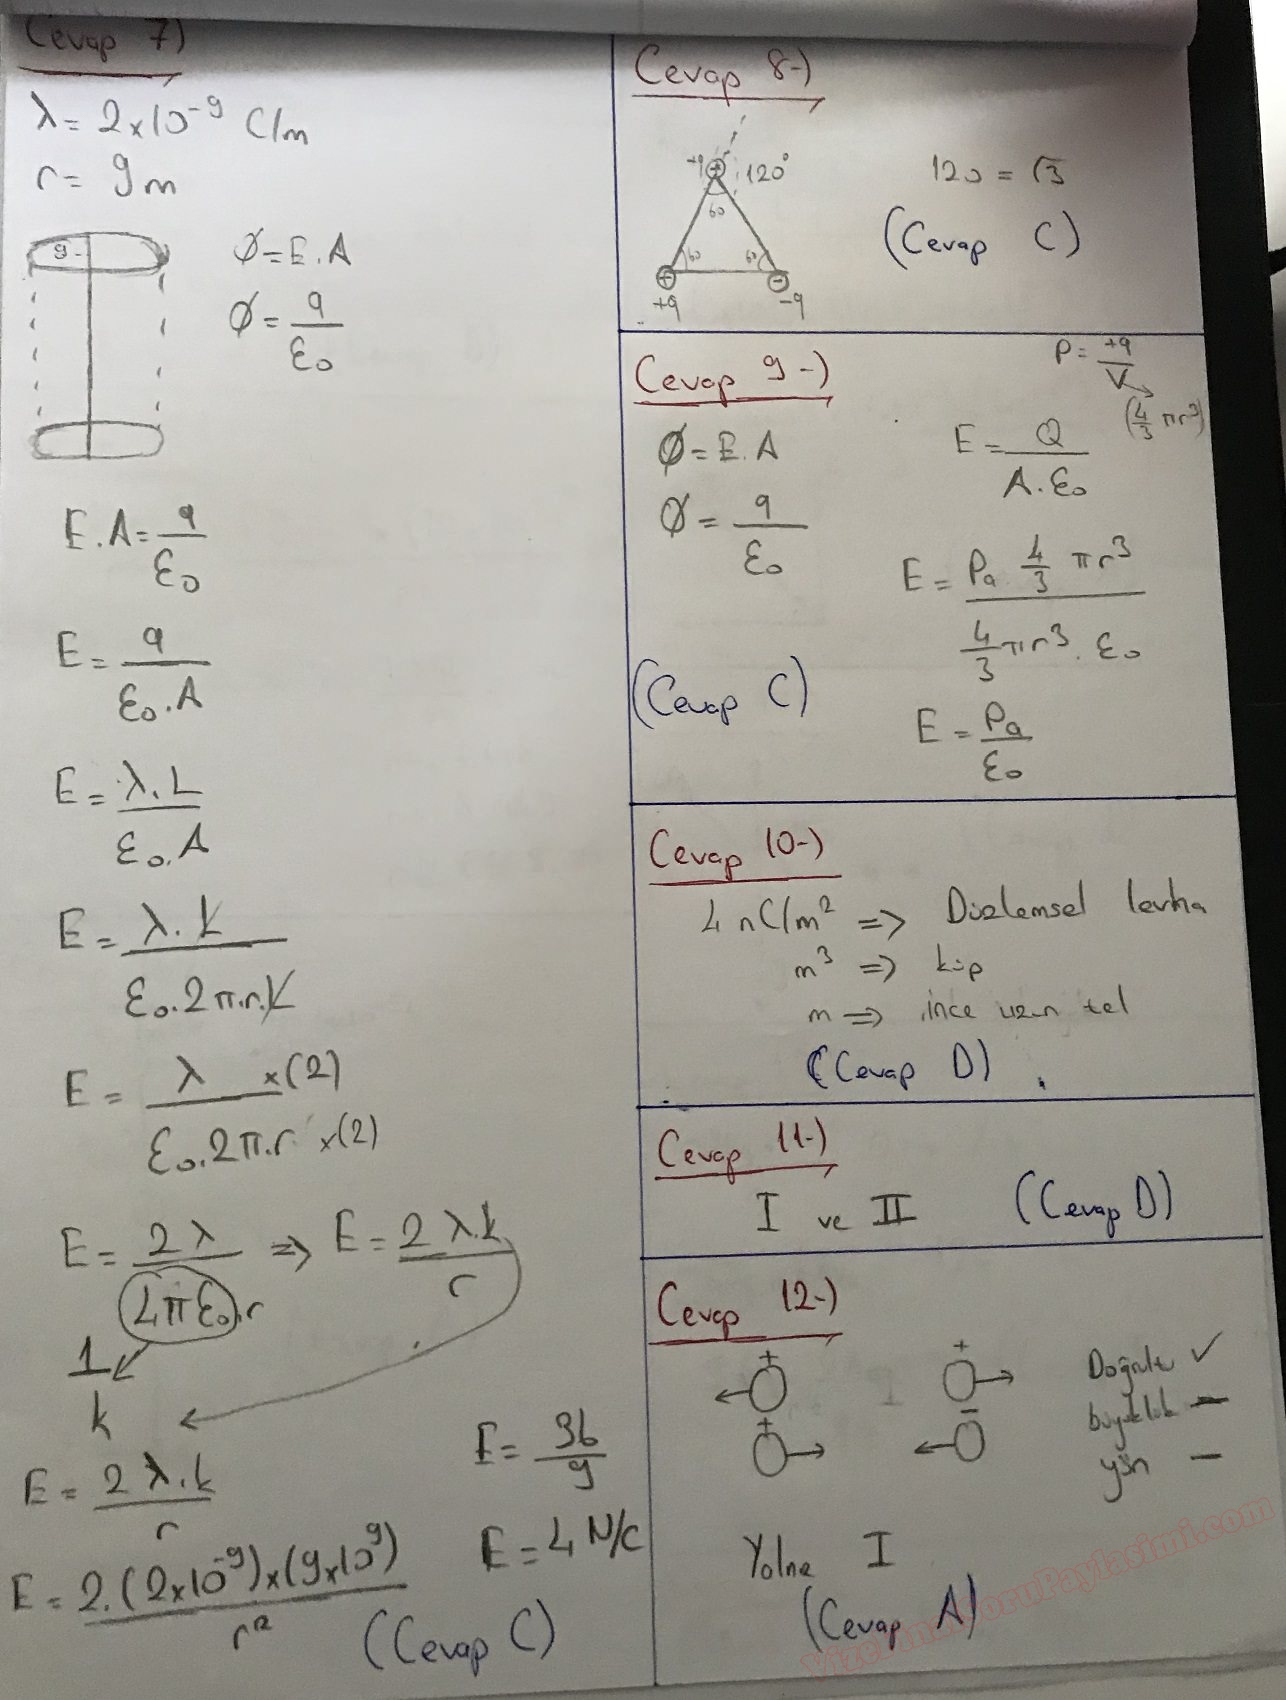 Cevap 7)
λ = 2x10⁻⁹ C/m
r = 9m
9
Ø = E.A
Ø = q/ε₀
E.A = q/ε₀
E = q/ε₀.A
E = λ.L/ε₀.A
E = λ.L/ε₀.2π.r.L
E = λ x(2)/ε₀.2π.r x(2)
E = 2λ/4πε₀.r => E = 2λ.k/r
1/k
E = 2λ.k/r
E = 2.(2x10⁻⁹)x(9x10⁹)/r²
E = 36/9
E = 4 N/C
(Cevap C)
Cevap 8-)
+q + 120°
60
60 60
+ -
+q -q
120 = √3
(Cevap C)
Cevap 9-)
Ø = E.A
Ø = q/ε₀
(Cevap C)
P = +q/V
(4/3 πr³)
E = Q/A.ε₀
E = Pa 4/3 πr³ / 4/3 πr³.ε₀
E = Pa/ε₀
Cevap 10-)
4 nC/m² => Düzlemsel levha
m³ => küp
m => ince uzun tel
(Cevap D)
Cevap 11-)
I ve II (Cevap D)
Cevap 12-)
+ + Doğrultu ✓
+ - büyüklük –
yön –
Yalnız I
(Cevap A)
VizeFinalSoruPaylasimi.com